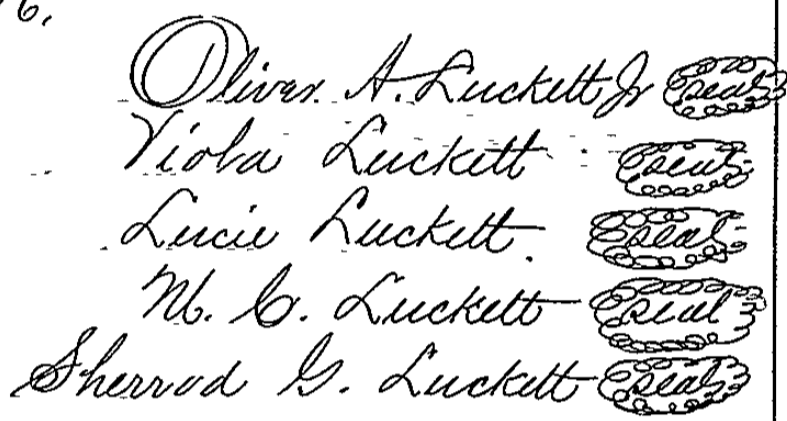 6.
Oliver A. Luckett Jr Seal
Viola Luckett Seal
Lucie Luckett Seal
M. C. Luckett Seal
Sherrod G. Luckett Seal